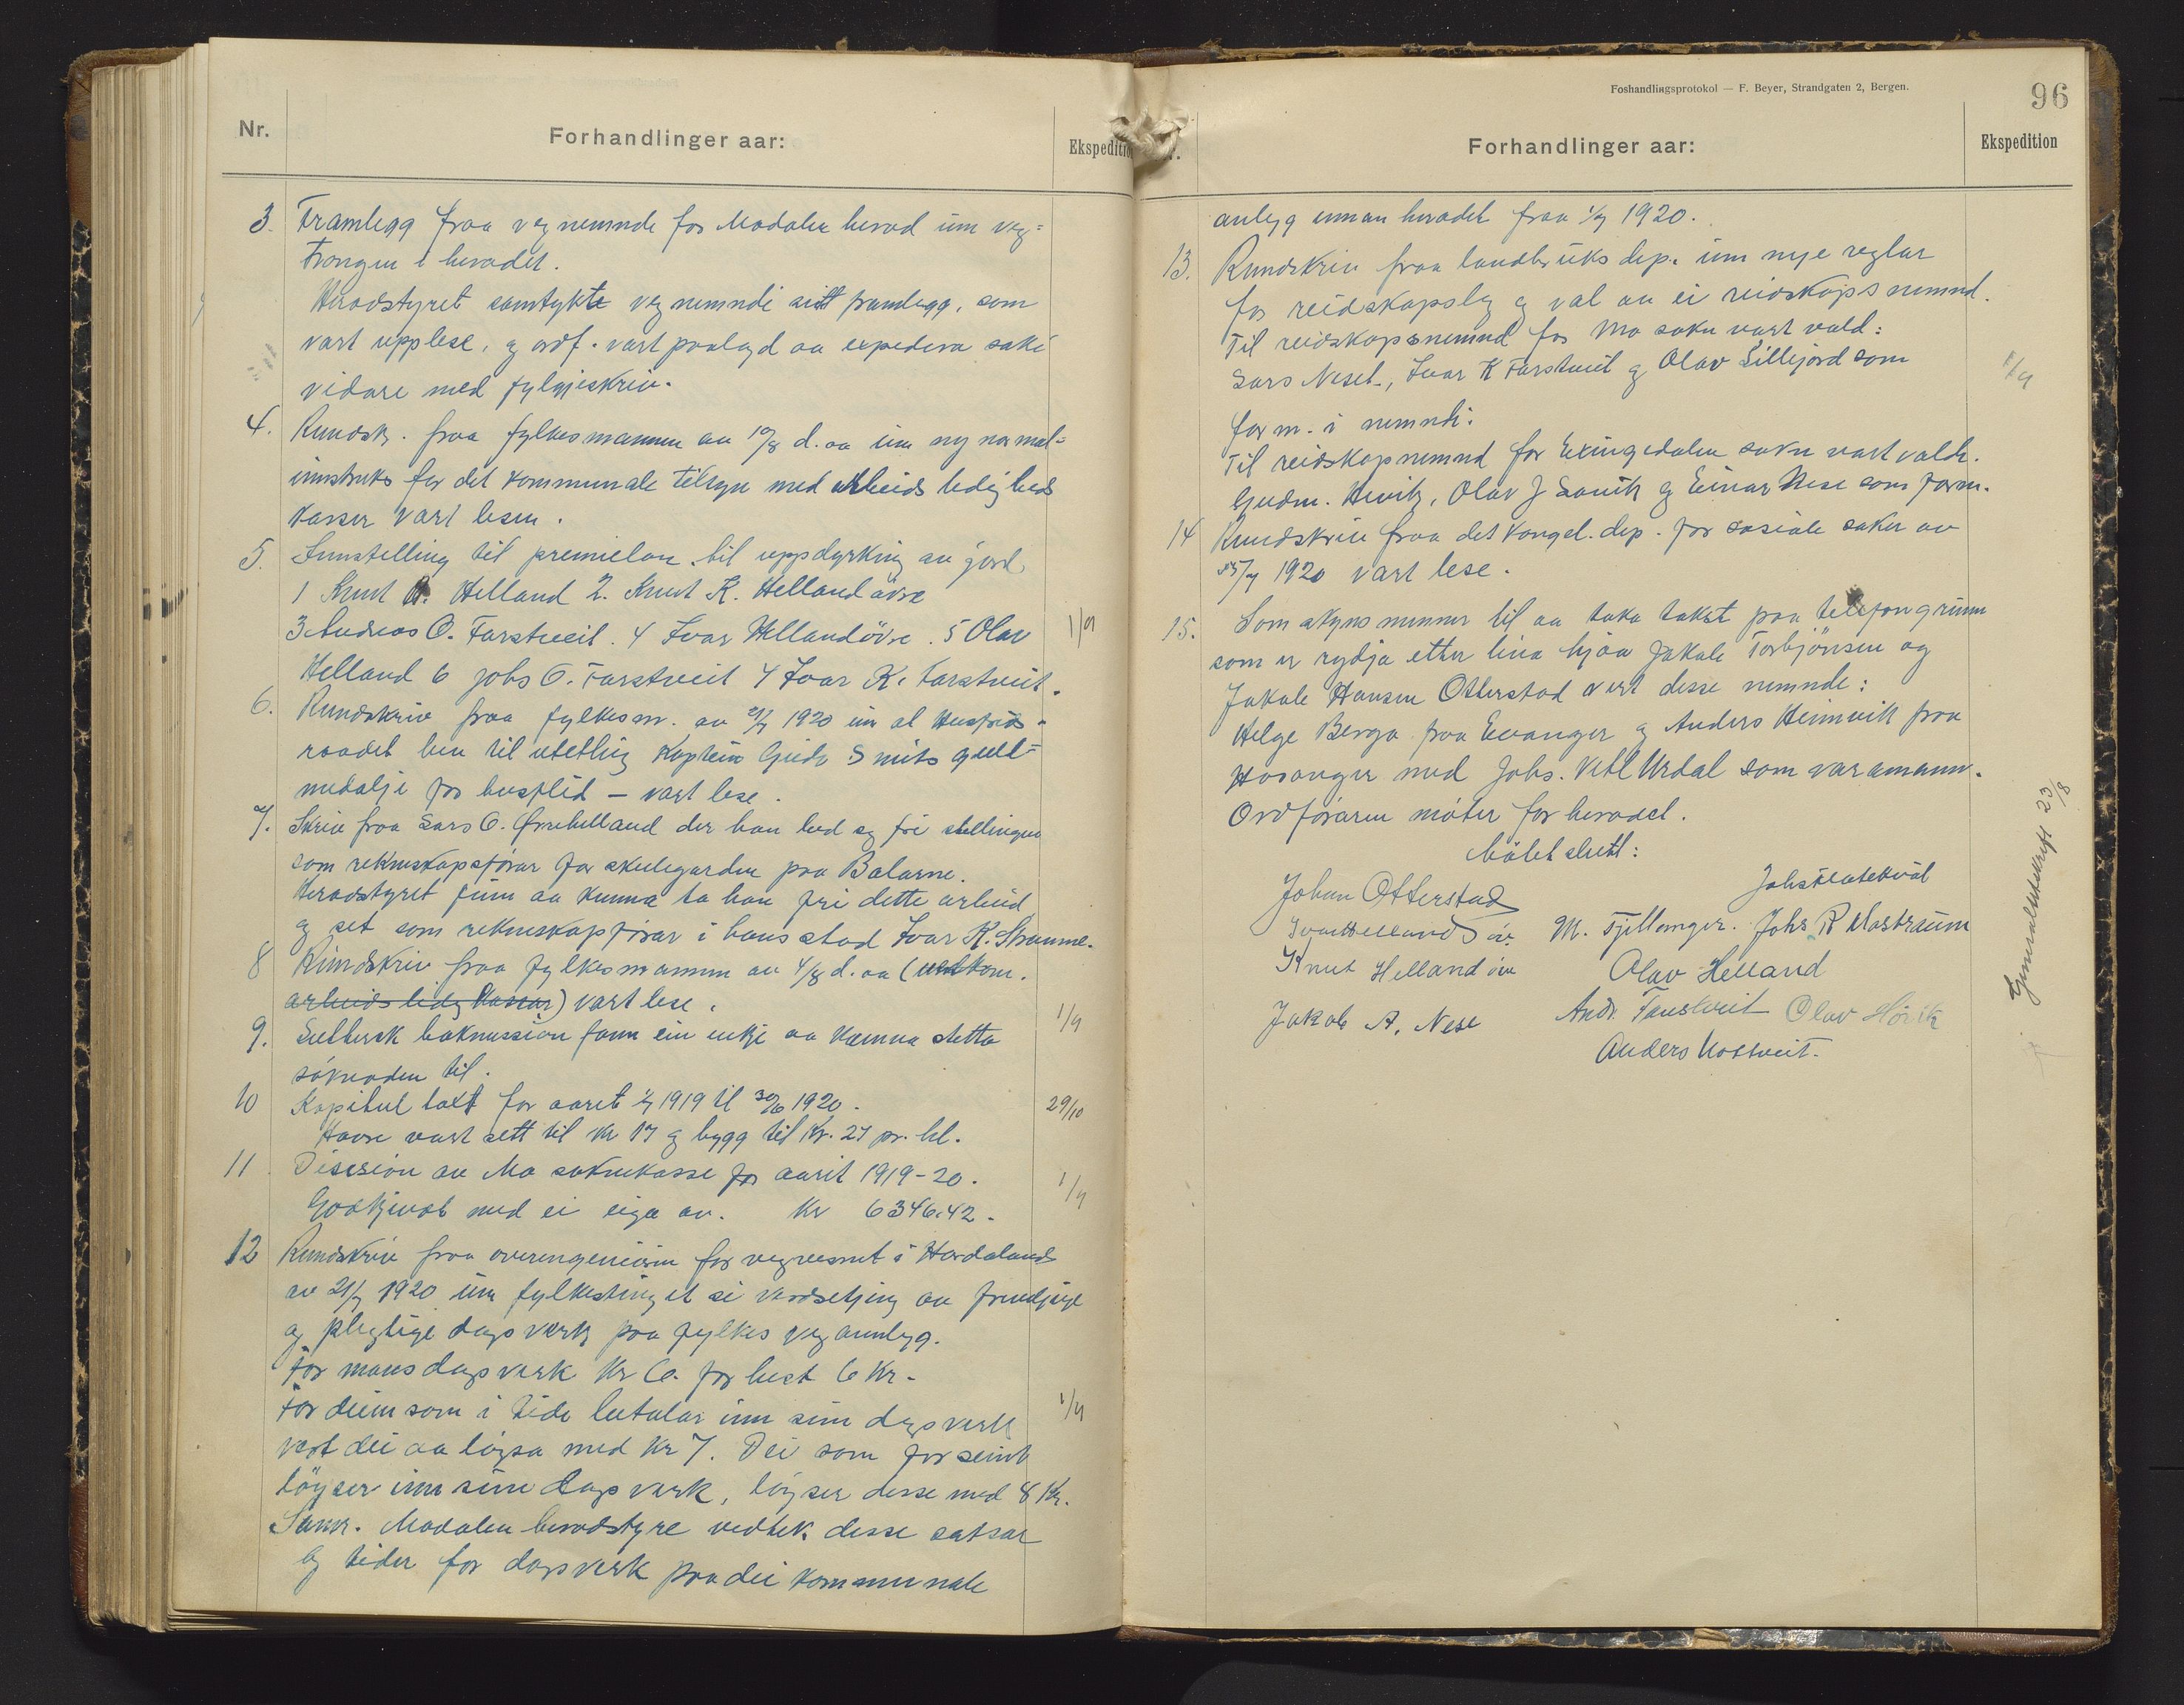 Nr.
Forhandlinger aar:
Ekspeditio
3. Framlegg fraa vegnemnde for Modalen herad um veg=
trongen i heradet.
Heradstyret samtykte vegnemndi sitt framlegg, som
vart upplese, og ordf. vart paalagd aa expedera saki
vidare med fylgjeskriv.
4. Rundsk. fraa fylkesmannen av 10/8 d.aa um ny normal=
innstruks for det kommunale tilsyn med arbeids ledigheds
kasser vart lesen.
5. Innstelling til premielaan til uppdyrking av jord
1 Knut Helland 2. Knut K. Helland övre
3 Andreas O. Farstveit. 4 Ivar Hellandövre. 5 Olav 1/9
Helland 6 Johs O. Farstveit 7 Ivar K. Farstveit.
6. Rundskriv fraa fylkesm. av 21/7 1920 um at Husflids-
raadet her til utetling Kaptein Guido Smits gull=
medalje for husflid — vart lese.
7. Skriv fraa Lars O. Øvrehelland der han bed seg fri stellingen
som rekneskapsförar for skulegarden paa Balarne.
Heradstyret finn aa kunna ta han fri dette arbeid
og set som rekneskapförar i hans stad Ivar K. Straume.
8 Rundskriv fraa fylkesmannen av 4/8 d.aa (vedkom.
arbeidsledig kassar) vart lese.
9. fann ein enkje aa kunna stetta 1/9
söknaden til.
10 Kapitul taxt for aaret 1/7 1919 til 30/6 1920. 29/10
Havre vart sett til kr 17 og bygg til Kr. 27 pr. hl.
11. Disision av Mo soknekasse for aarit 1919-20. 1/9
Godkjendt med ei eiga av. Kr 6346.42.
12 Rundskriv fraa overingeniören for vegvesnet i Hordaland
av 21/7 1920 um fylkestinget si verdsetjing av
og pligtige dagsverk paa fylkes veganlegg.
For mans dagsverk Kr 6. for hest 6 Kr.
For deim som i tide betalar inn sine dagsverk 1/9
vert dei aa löysa med Kr 7. Dei som for seint
löyser inn sine dagsverk, löyser desse med 8 Kr.
Samr. Modalen heradstyre vedtek desse satsar
og tider for dagsverk paa dei kommunale
Foshandlingsprotokol — F. Beyer, Strandgaten 2, Bergen.
96
Forhandlinger aar:
Ekspedition
anlegg innan heradet fraa 1/7 1920.
13. Rundskriv fraa landbruks dep. um nye reglar
for reidskapslag og val av ei reidskaps nemnd.
Til reidskapsnemnd for Mo sokn vart vald:
Lars Neset, Ivar K Farstveit og Olav Lillejord som 1/9
form. i nemndi.
Til reidskapnemnd for Exingedalen sokn vart valde.
Gudm. Høvik, Olav J Høvik og Einar Nese som form.
14 Rundskriv fraa det kongel. dep. for sosiale saker av
15/7 1920 vart lese.
15. Som skynsmenner til aa taka takst paa telefongrunn
som er rydja etter lina hjaa Jakob Torbjönsen og
Jakob Hansen Otterstad vert desse nemnde:
Helge Berga fraa Evanger og Anders Heimvik fraa
Hosanger med Johs. Vetl Urdal som varamann.
Ordföraren möter for heradet.
Mötet slutt:
Johan Otterstad
M. Fjellanger. Johs R Mostraum
Knut Helland öv
Olav Helland
Jakob A. Nese
Andr. Farstveit Olav Hövik
Anders
23/8